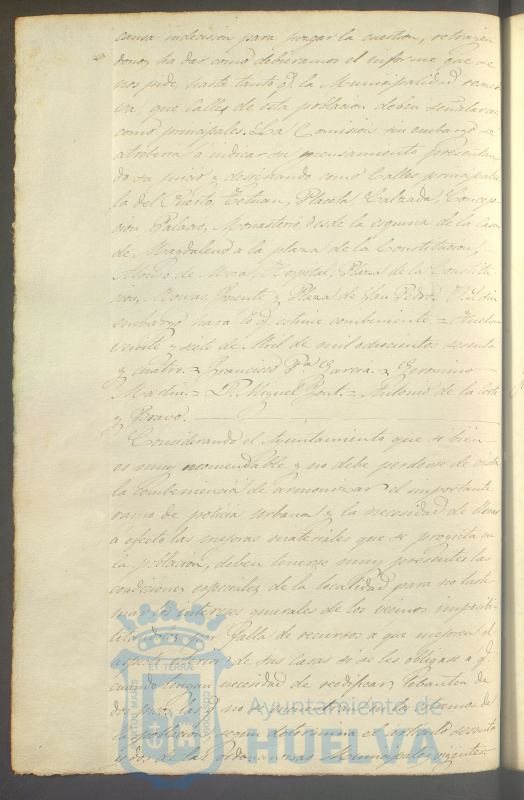 causa indecision para juzgar la cuestion, retrayen
donos ha dar como debieramos el informe que se
nos pide, hasta tanto q.e la Municipalidad resuel
va, que calles de esta poblacion deben señalarse
como principales. La Comision sin embargo se
atreberia á indicar su pensamiento presentan
do su juicio y designando como Calles principales
la del Puerto, Tetuan, Placeta, Calzada, Concep
cion, Palacio, Monasterio, desde la esquina de la Casa
de Magdalena á la plaza de la Constitucion,
Alonso de Mora, Hospital, Plaza de la Constitu
cion, Monjas, Fuente y Plaza de San Pedro. V.S. sin
embargo hará lo q.e estime combeniente. = Huelva
veinte y siete de Abril de mil ochocientos sesenta
y cuatro. = Francisco Garcia. = Geronimo
Martin. = D. Miguel = Antonio de la Corte
y Bravo.
Considerando el Ayuntamiento que si bien
es muy recomendable y no debe perderse de vista
la combeniencia de armonizar el importante
ramo de policia urbana y la necesidad de llevar
a efecto las mejoras materiales que se proyecta en
la poblacion, deben tenerse muy presentes las
condiciones especiales de la localidad para no lasti
mar los intereses generales de los vecinos imposibi
litandoles por falta de recursos a que mejoren el
aspecto exterior de sus casas si se les obligase a q.e
cuando tengan necesidad de reedificar, lebanten de
dos pisos las q.e no se encuentran en los estremos de
la poblacion segun determina el articulo sesenta
y dos de las Ordenanzas Municipales vigentes.
Ayuntamiento de
HUELVA